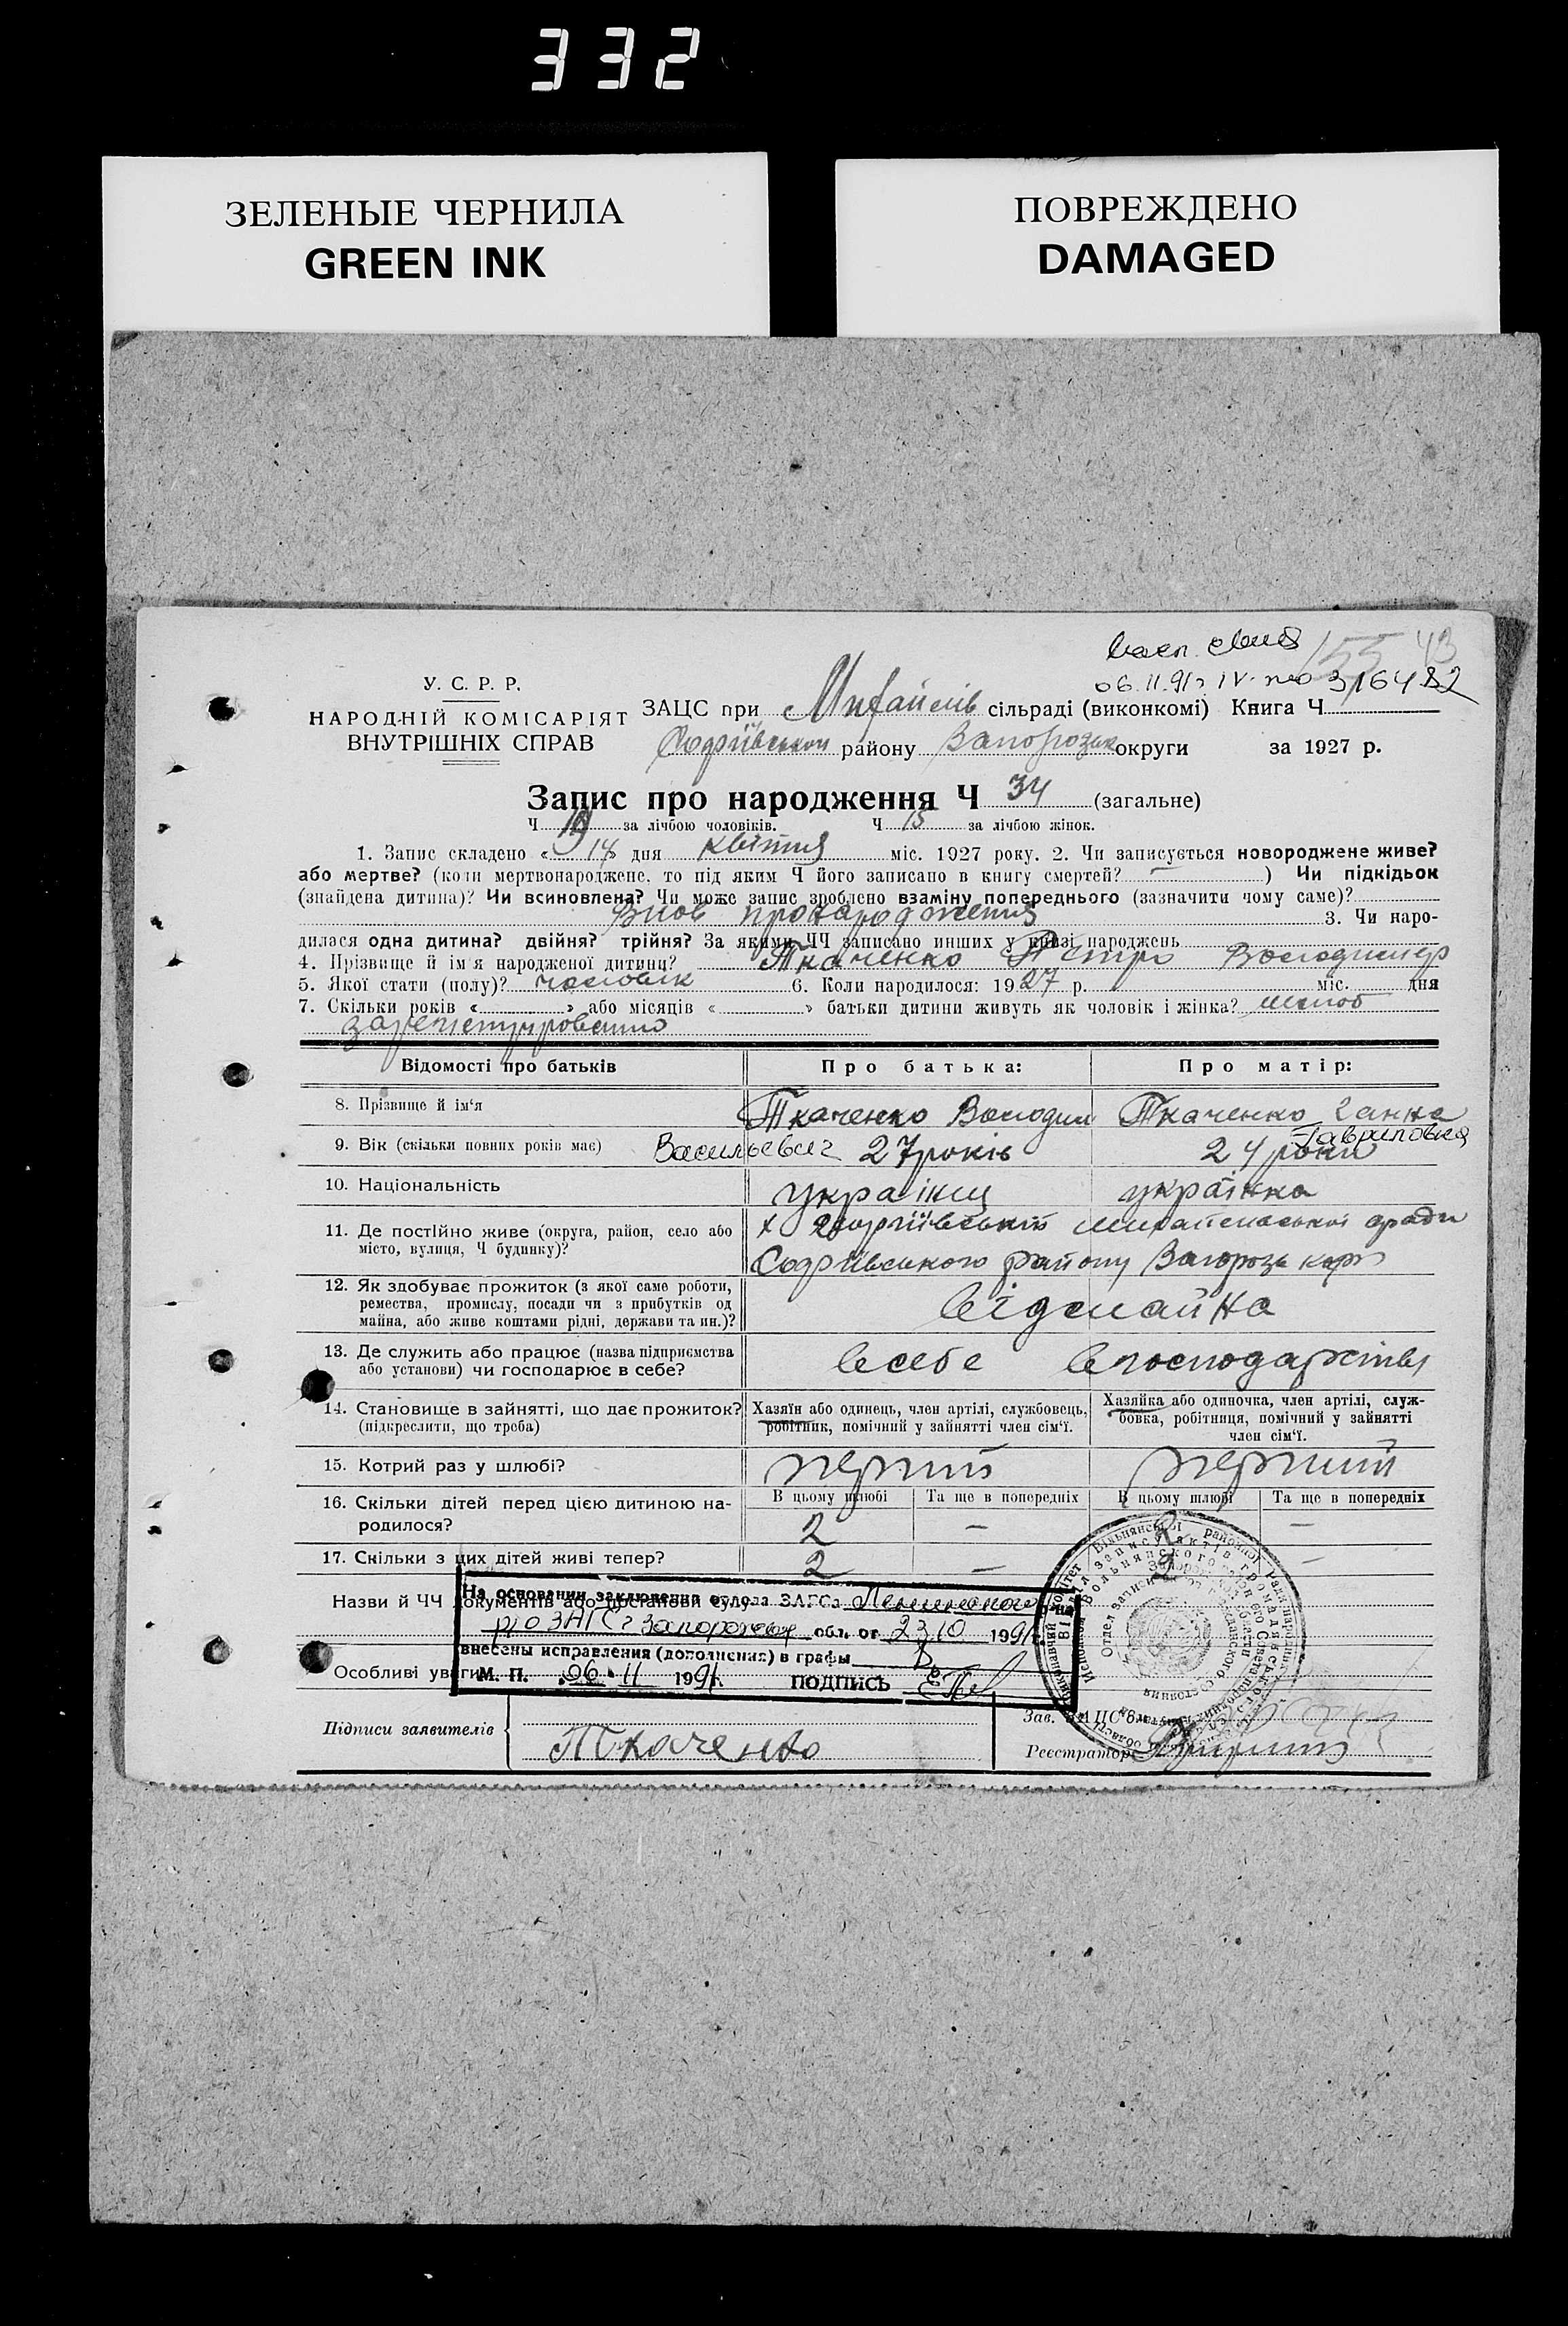 332
ЗЕЛЕНЫЕ ЧЕРНИЛА
GREEN INK
ПОВРЕЖДЕНО
DAMAGED
155 43
06.11.91 IV 316482
У. С. Р. Р.
НАРОДНІЙ КОМІСАРІЯТ
ВНУТРІШНІХ СПРАВ
ЗАЦС при Михайлів сільраді (виконкомі) Книга Ч
району Запорозьк округи за 1927 р.
Запис про народження Ч 34 (загальне)
Ч 19 за лічбою чоловіків. Ч 15 за лічбою жінок.
1. Запис складено « 14 » дня квітня міс. 1927 року. 2. Чи записується новороджене живе?
або мертве? (коли мертвонароджене, то під яким Ч його записано в книгу смертей? — ) Чи підкідьок
(знайдена дитина)? Чи всиновлена? Чи може запис зроблено взаміну попереднього (зазначити чому саме)?
3. Чи наро-
дилася одна дитина? двійня? трійня? За якими ЧЧ записано инших у книзі народжень
4. Прізвище й ім'я народженої дитини? Ткаченко Петро Володимир
5. Якої стати (полу)? чоловік 6. Коли народилося: 1927 р. міс. дня
7. Скільки років « » або місяців « » батьки дитини живуть як чоловік і жінка? шлюб
Відомості про батьків Про батька: Про матір:
8. Прізвище й ім'я Ткаченко Володим Ткаченко Ганна
Васильевич Гавриловна
9. Вік (скільки повних років має) 27 років 24 роки
10. Національність українц українка
11. Де постійно живе (округа, район, село або
місто, вулиця, Ч будинку)?
х Георгіївський Михайлівської сради
району Запорозь
12. Як здобуває прожиток (з якої саме роботи,
ремества, промислу, посади чи з прибутків од
майна, або живе коштами рідні, держави та ин.)?
від майна
13. Де служить або працює (назва підприємства
або установи) чи господарює в себе?
в себе в господарстві
14. Становище в зайнятті, що дає прожиток?
(підкреслити, що треба)
Хазяїн або одинець, член артілі, службовець,
робітник, помічний у зайнятті член сім'ї.
Хазяйка або одиночка, член артілі, служ-
бовка, робітниця, помічний у зайнятті
член сім'ї.
15. Котрий раз у шлюбі? перший перший
16. Скільки дітей перед цією дитиною на-
родилося?
В цьому шлюбі Та ще в попередніх В цьому шлюбі Та ще в попередніх
2 — 2 —
17. Скільки з цих дітей живі тепер? 2 — 2 —
Назви й ЧЧ документів або постанови суду
На основании заключения отдела ЗАГСа Ленинского р-на
р/о ЗАГС г Запорожья обл. от 23.10 1991 г.
внесены исправления (дополнения) в графы 8
М. П. 06.11 1991 г. ПОДПИСЬ
Особливі уваги
Підписи заявителів Ткаченко
Зав. ЗАЦС'ом
Реєстратор